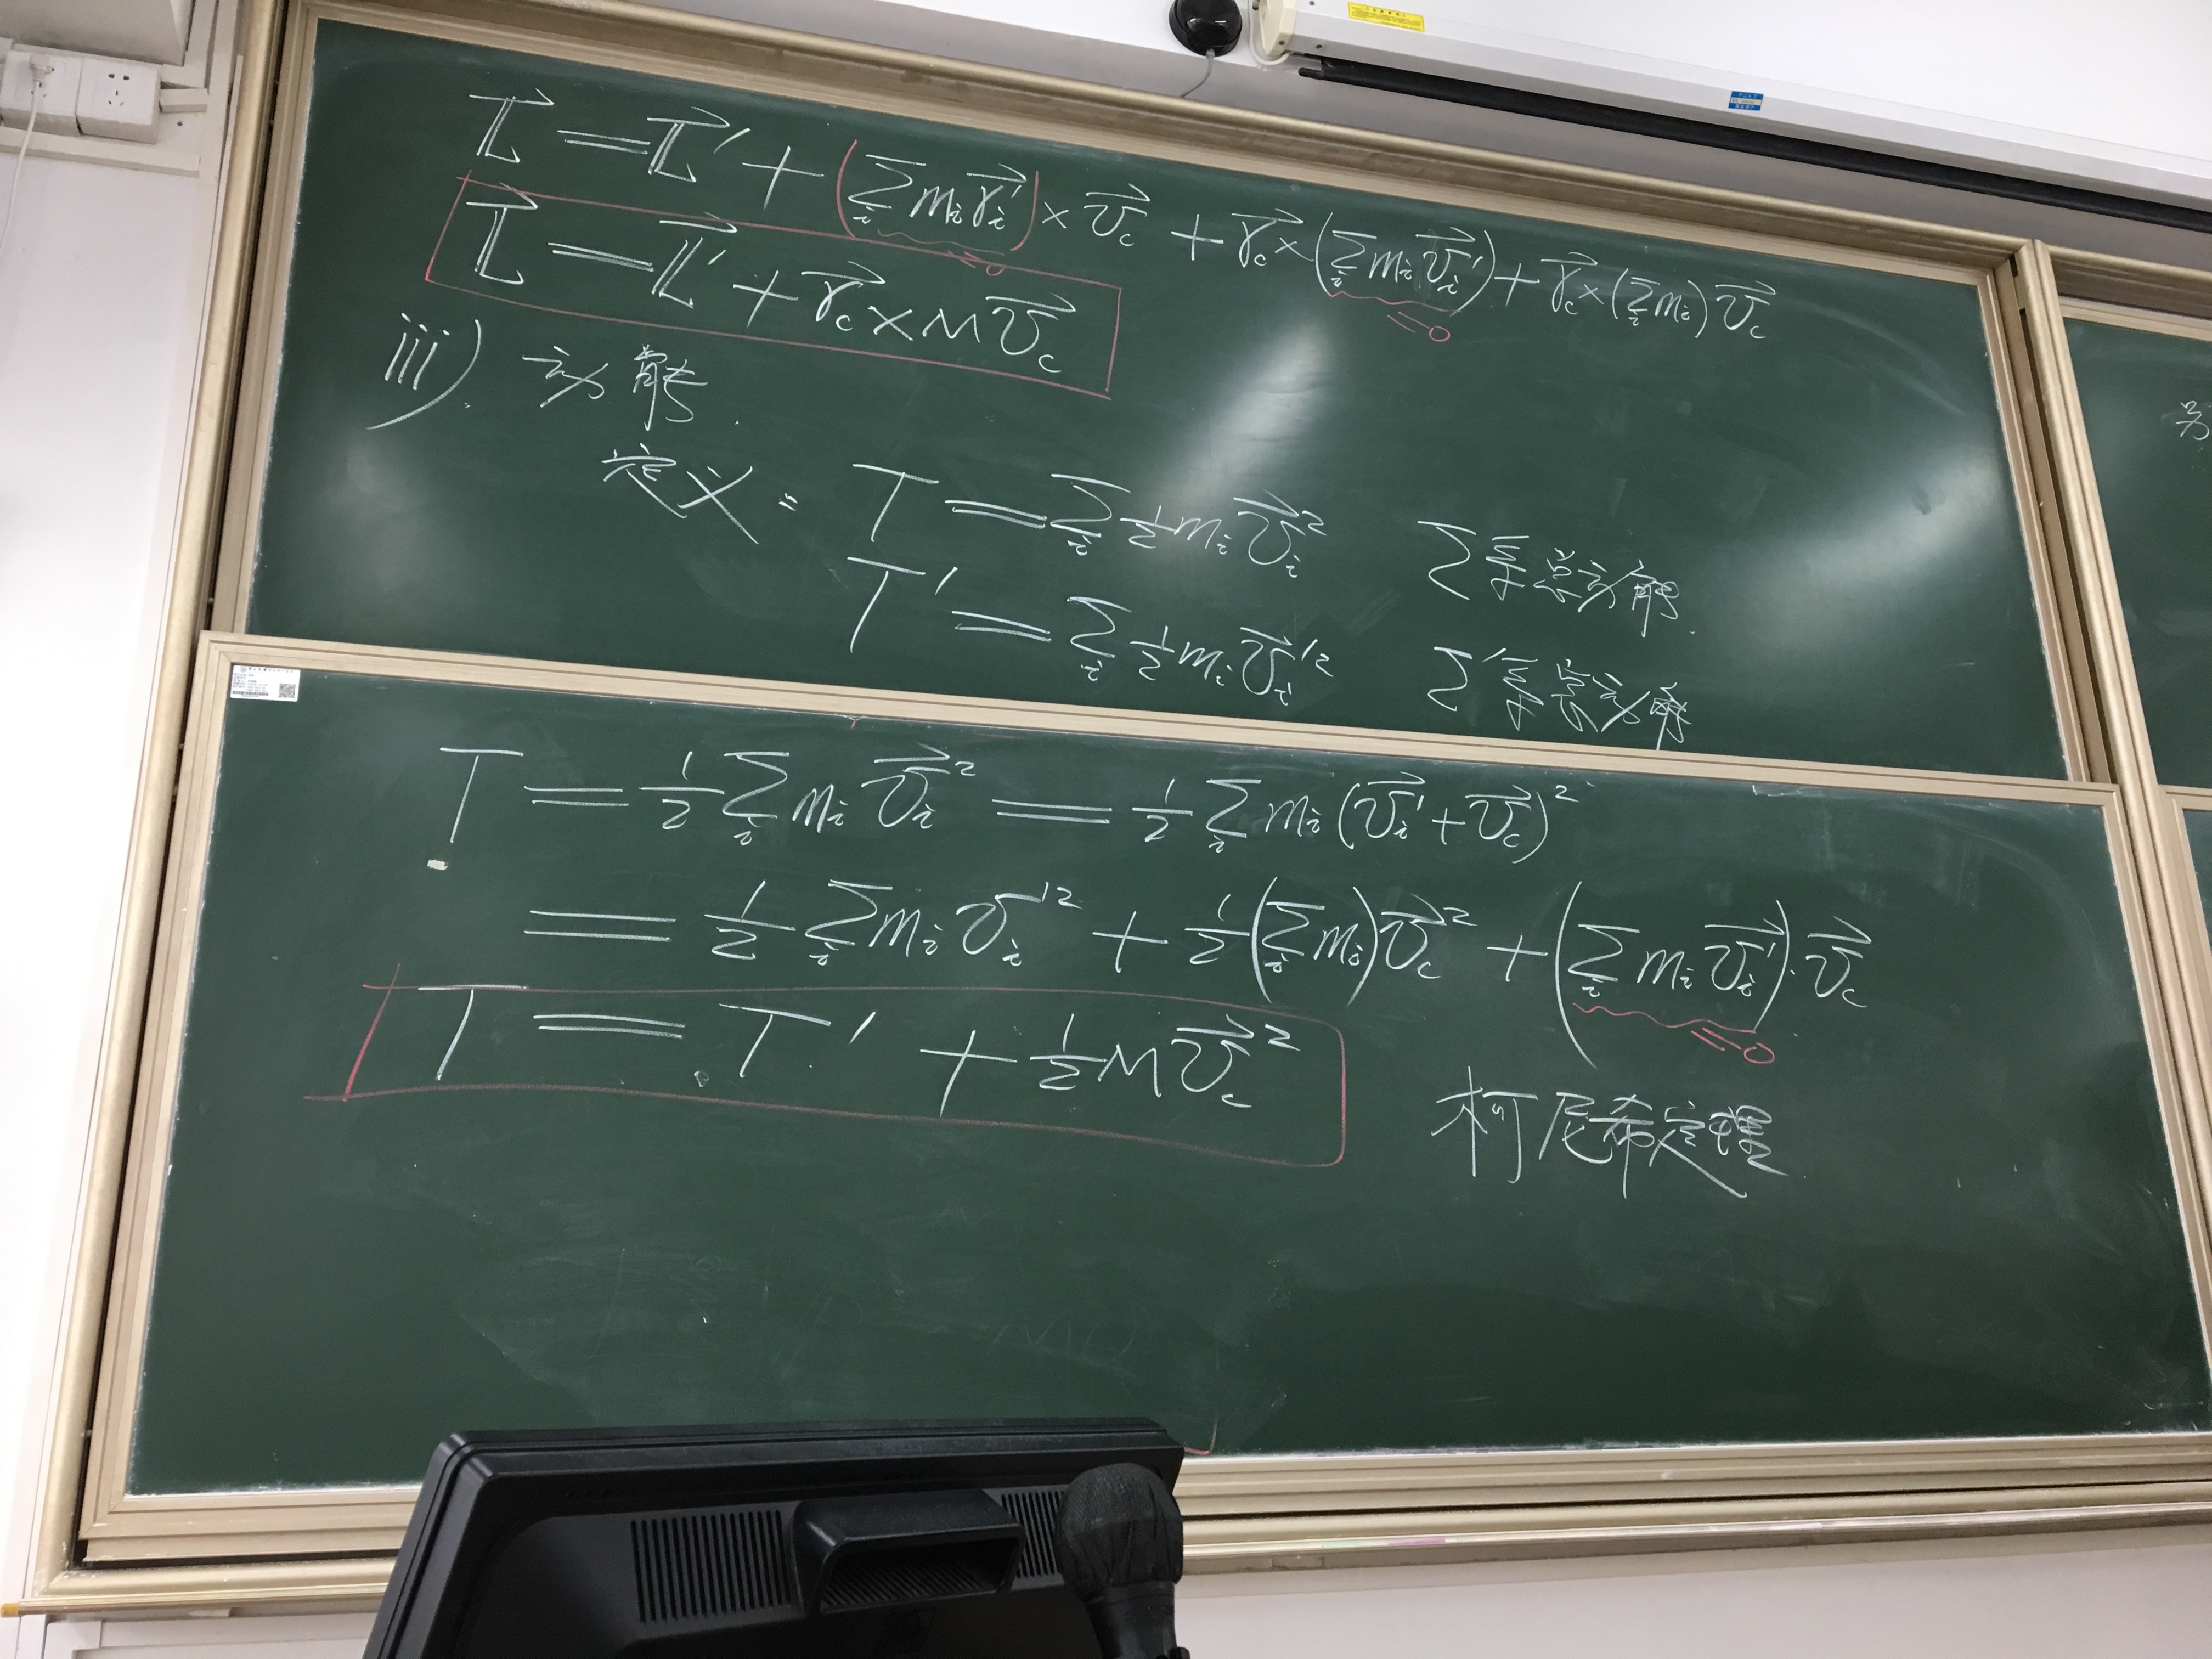 L⃗ = L⃗′ + (∑ᵢ mᵢ r⃗ᵢ′) × v⃗_c + r⃗_c × (∑ᵢ mᵢ v⃗ᵢ′) + r⃗_c × (∑ᵢ mᵢ) v⃗_c
=0 =0
L⃗ = L⃗′ + r⃗_c × M v⃗_c
iii). 动能.
定义: T = ∑ᵢ ½ mᵢ v⃗ᵢ² ∑系总动能.
T′ = ∑ᵢ ½ mᵢ v⃗ᵢ′² ∑′系总动能
T = ½ ∑ᵢ mᵢ v⃗ᵢ² = ½ ∑ᵢ mᵢ (v⃗ᵢ′ + v⃗_c)²
= ½ ∑ᵢ mᵢ vᵢ′² + ½ (∑ᵢ mᵢ) v⃗_c² + (∑ᵢ mᵢ v⃗ᵢ′) · v⃗_c
=0
T = T′ + ½ M v⃗_c² 柯尼希定理